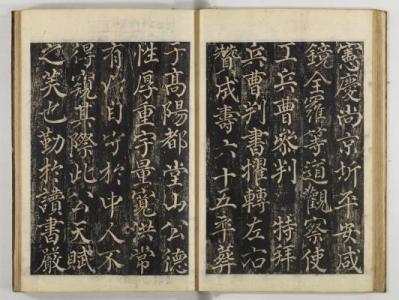 憲慶尚京圻平安咸
鏡全羅等道觀察使
工兵曹叅判　特拜
兵曹判書擢轉左右
贊成壽六十五卒葬
于高陽都堂山公德
性厚重宇量寬洪常
有　曰　於中人不
得窺其際此公天賦
之美也勤於讀書嚴